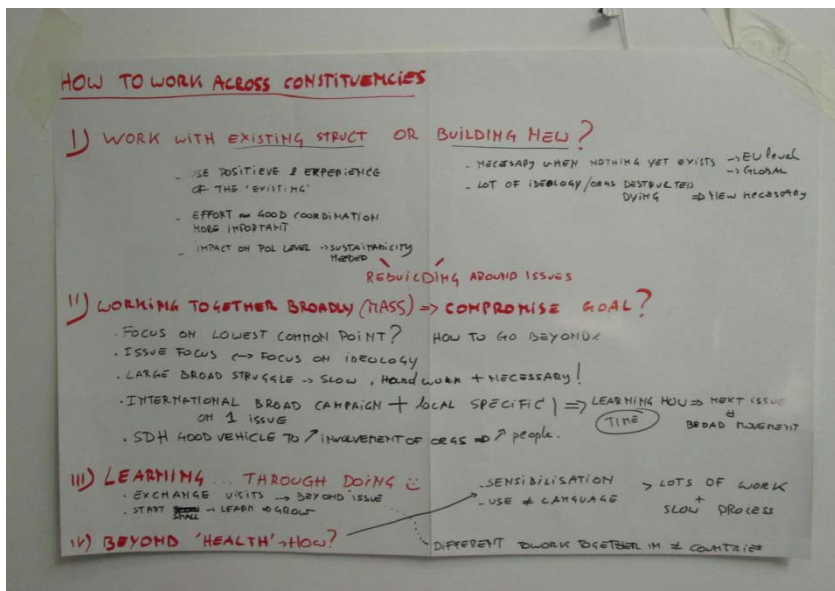 HOW TO WORK ACROSS CONSTITUENCIES
I) WORK WITH EXISTING STRUCT OR BUILDING NEW?
- USE POSITIEVE & EXPERIENCE
OF THE 'EXISTING'
- EFFORT GOOD COORDINATION
MORE IMPORTANT
- IMPACT ON POL LEVEL → SUSTAINABICITY
NEEDED
- NECESSARY WHEN NOTHING YET EXISTS → EU level
→ GLOBAL
- LOT OF IDEOLOGY/ORGS DESTRUCTED
DYING ⇒ New necessary
REBUILDING AROUND ISSUES
II) WORKING TOGETHER BROADLY (MASS) ⇒ COMPROMISE GOAL?
• FOCUS ON LOWEST COMMON POINT? HOW TO GO BEYOND
• ISSUE FOCUS ↔ FOCUS ON IDEOLOGY
• LARGE BROAD STRUGGLE → SLOW, Hard work + NECESSARY!
• INTERNATIONAL BROAD CAMPAIGN + local SPECIFIC) ⇒ LEARNING HOW ⇒ NEXT ISSUE
ON 1 ISSUE TIME BROAD MOVEMENT
• SDH GOOD VEHICLE TO ↗ INVOLVEMENT OF ORGS ⇒ ↗ people.
III) LEARNING ... THROUGH DOING ☺
• EXCHANGE VISITS → BEYOND ISSUE
• START SMALL → LEARN ⇒ GROW
- SENSIBILISATION
- USE ≠ LANGUAGE
> LOTS OF WORK
+
SLOW PROCESS
IV) BEYOND 'HEALTH' → HOW?
DIFFERENT TO WORK TOGETHER IN ≠ COUNTRIES